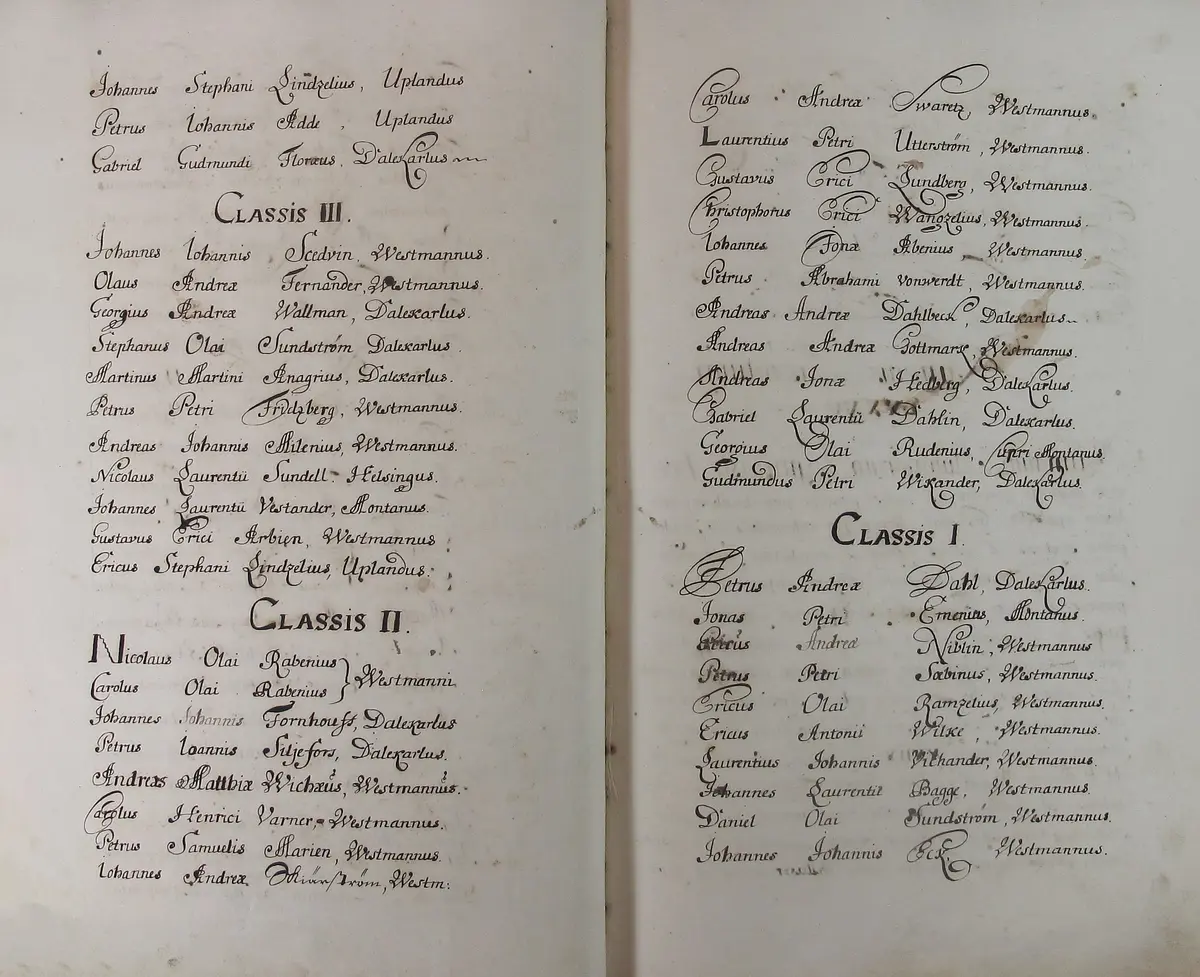 Johannes Stephani Lindzelius, Uplandus
Petrus Iohannis Adde, Uplandus
Gabriel Gudmundi Floræus, Dalekarlus
CLASSIS III.
Johannes Iohannis Scedvin, Westmannus.
Olaus Andreæ Fernander, Westmannus.
Georgius Andreæ Wallman, Dalekarlus.
Stephanus Olai Sundström Dalekarlus.
Martinus Martini Anagrius, Dalekarlus.
Petrus Petri Frydzberg, Westmannus.
Andreas Johannis Milenius, Westmannus.
Nicolaus Laurentii Sundell. Helsingus.
Johannes Laurentii Vestander, Montanus.
Gustavus Erici Arbien, Westmannus
Ericus Stephani Lindzelius, Uplandus.
CLASSIS II.
Nicolaus Olai Rabenius
Carolus Olai Rabenius } Westmanni
Johannes Johannis Fornhouff, Dalekarlus
Petrus Ioannis Siljefors, Dalekarlus.
Andreas Matthiæ Wichæus, Westmannus.
Carolus Henrici Varner, Westmannus.
Petrus Samuelis Marien, Westmannus.
Iohannes Andreæ Westm:
Carolus Andreæ Swaretz, Westmannus.
Laurentius Petri Utterström, Westmannus.
Gustavus Erici Lundberg, Westmannus.
Christophorus Erici Wangzelius, Westmannus.
Iohannes Jonæ Abenius, Westmannus.
Petrus Abrahami vonwerdt, Westmannus.
Andreas Andreæ Dahlbeck, Dalekarlus
Andreas Andreæ Gottmark, Westmannus.
Andreas Jonæ Hedberg, Dalekarlus.
Gabriel Laurentii Dahlin, Dalekarlus.
Georgius Olai Rudenius, Cupri Montanus.
Gudmundus Petri Wikander, Dalekarlus.
CLASSIS I.
Petrus Andreæ Dahl, Dalekarlus.
Jonas Petri Emenius, Montanus.
Andreæ Niblin, Westmannus
Petrus Petri Sæbinus, Westmannus.
Ericus Olai Ramzelius, Westmannus.
Ericus Antonii Wilke, Westmannus.
Laurentius Johannis Vichander, Westmannus.
Johannes Laurentii Bagge, Westmannus.
Daniel Olai Sundström, Westmannus.
Johannes Johannis Eck. Westmannus.